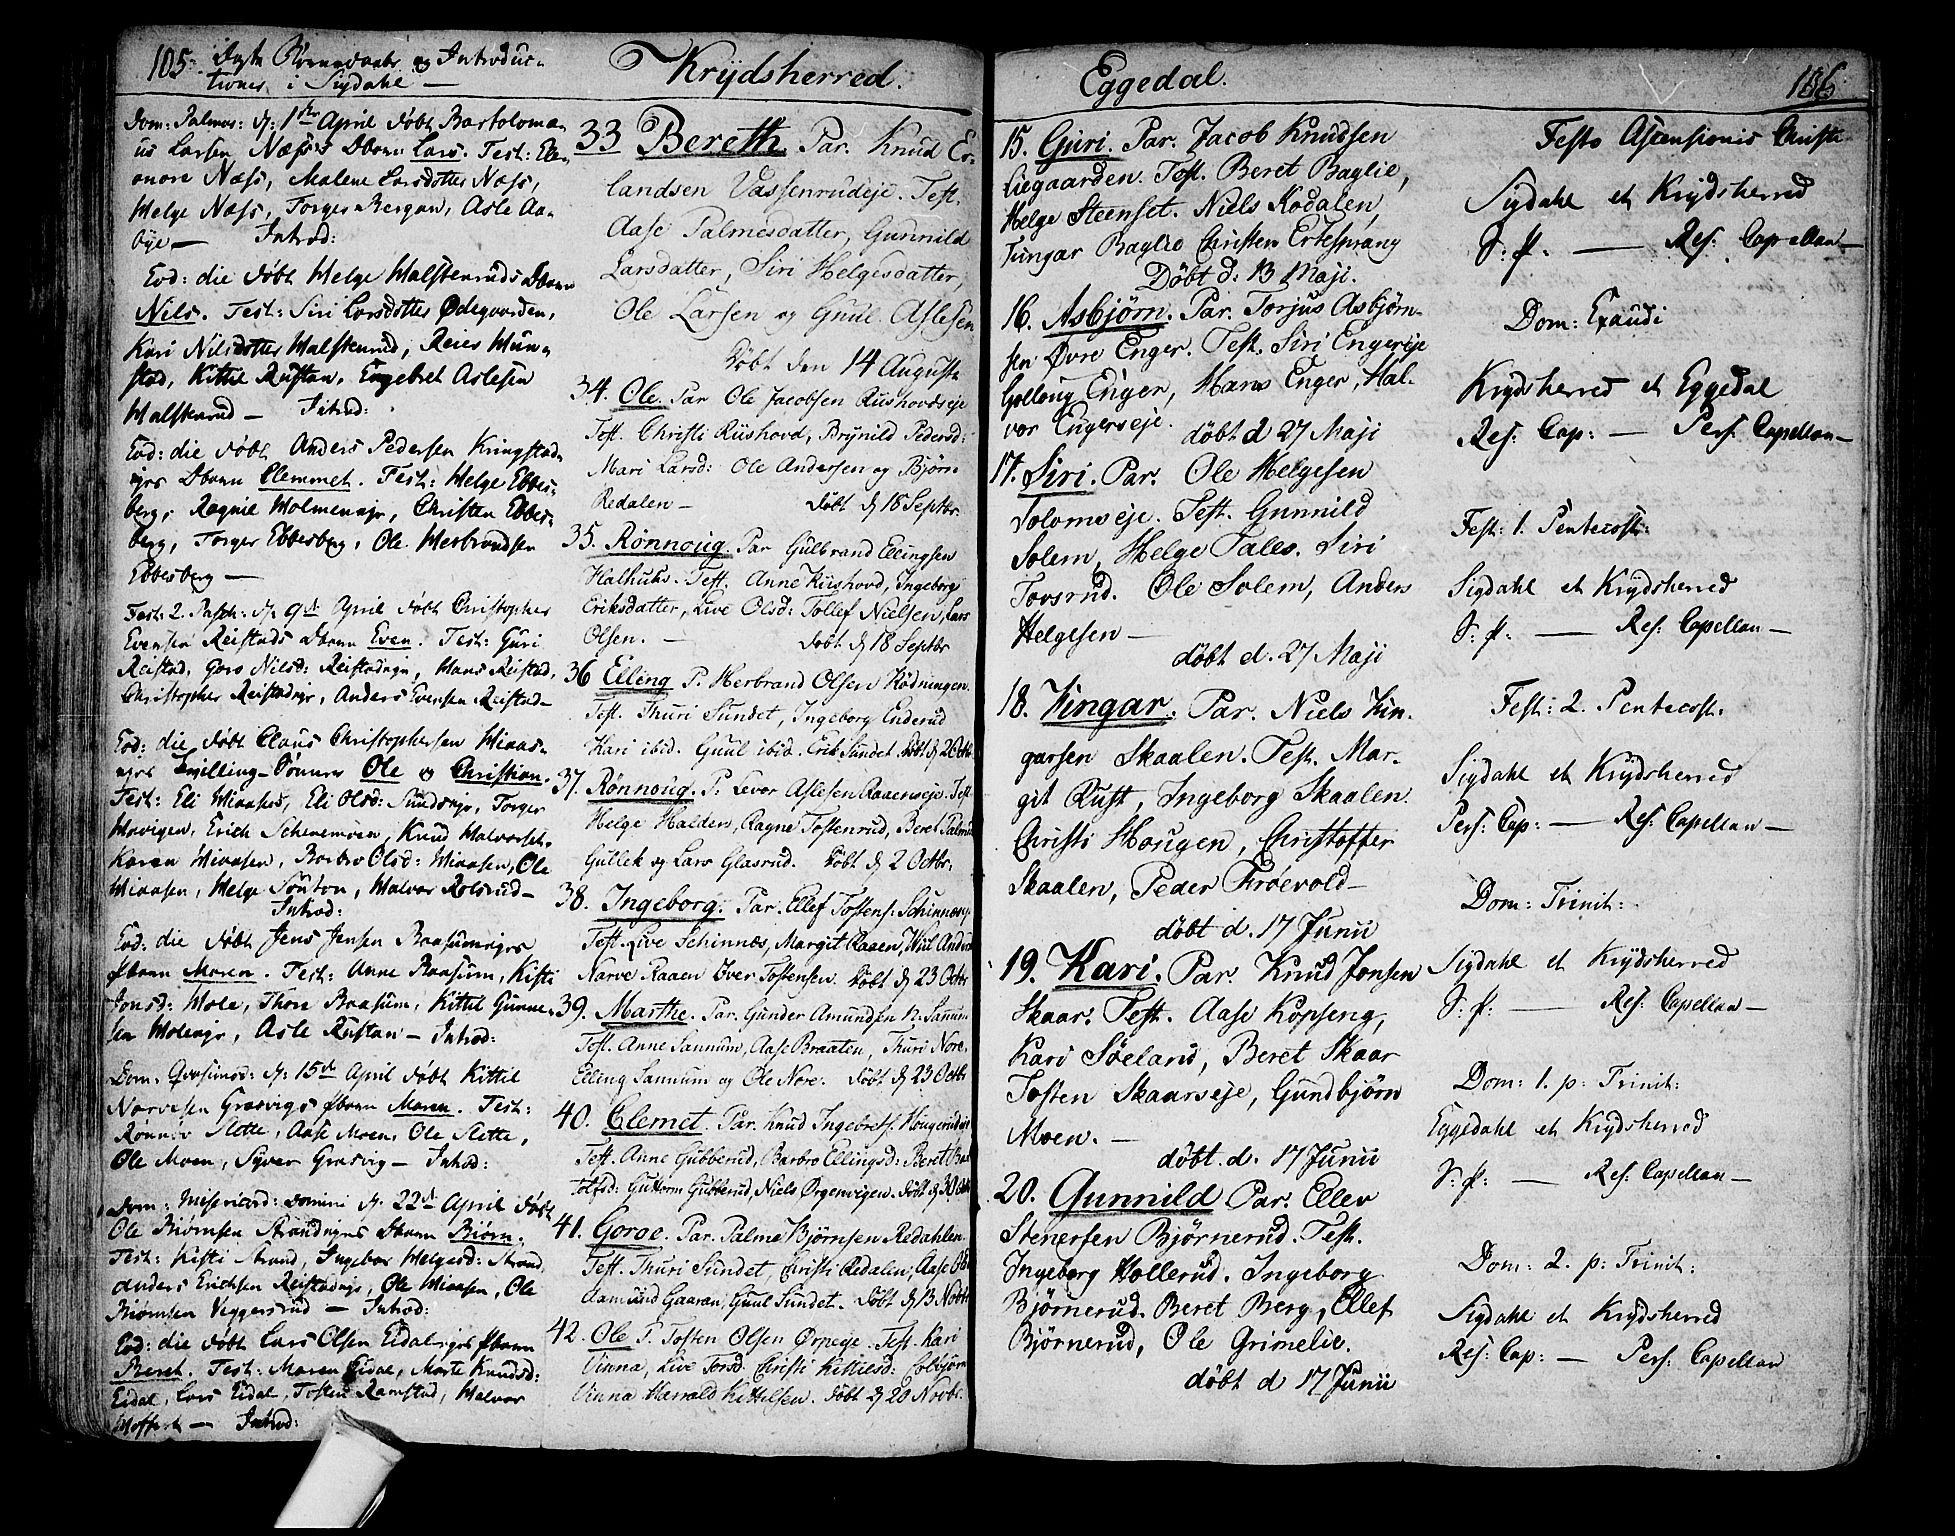 105. Ægte Børnedaabe og Introduc-
tioner i Sigdahl —
Dom: Palmar: d: 1ste April døbt Bartoloma-
us Larsen Næss's Dbarn Lars. Test: Ele-
onore Næss, Malene Larsdatter Næss,
Helge Næss, Torger Bergan, Asle Aa-
bye — Introd:
Eod: die døbt Helge Halstenruds Dbarn
Nils. Test: Siri Larsdatter Ødegaarden,
Kari Nilsdatter Halstenrud, Reier Mun-
stad, Kittil Rustan, Engebret Aslesen
Halstenrud — Introd:
Eod: die døbt Anders Pedersen Kringstad-
ejes Dbarn Clemmet. Test: Helge Ebbes-
berg, Ragnil Holmeneje, Christen Ebbes-
berg, Torger Ebbesberg, Ole Herbrandsen
Ebbesberg —
Fest: 2. Pasch: d. 9de April døbt Christopher
Evensen Reistads Dbarn Even. Test: Guri
Reistad, Goro Nilsd: Reistadeje, Hans Reistad,
Christopher Reistadeje, Anders Evensen Reistad —
Eod: die døbt Claus Christophersen Miaas-
ejes Tvilling-Sønner Ole og Christian.
Test: Eli Miaasen, Eli Olsd: Sundseje, Torger
Havigen, Erich Schenemoen, Knud Halvorset,
Karen Miaasen, Barbro Olsd: Miaasen, Ole
Miaasen, Helge Sønton, Halvor Rolsrud —
Introd:
Eod: die døbt Jens Jensen Braasumejes
Dbarn Maren. Test: Anne Braasum, Kisti
Jonsd: Mole, Thore Braasum, Kittil Gunne-
sen Moleeje, Asle Rustan — Introd:
Dom: Qvasimod: d: 15de April døbt Kittil
Narvesen Grasvigs Dbarn Maren. Test:
Rønnøv Slette, Aase Moen, Ole Slette,
Ole Moen, Syver Grasvig — Introd:
Dom: Misericord: Domini d. 22de April døbt
Ole Biørnsen Strandejes Dbarn Biørn.
Test: Kisti Strand, Ingebor Helgesd: Strand,
Anders Erichsen Reistadeje, Ole Miaasen, Ole
Biørnsen Viggersrud — Introd:
Eod: die døbt Lars Olsen Eidalejes Dbarn
Beret. Test: Maren Eidal, Marte Knudsd:
Eidal, Lars Eidal, Tosten Ramstad, Halvor
— Introd:
Krÿdsherred.
33 Bereth. Par. Knud Er-
landsen Vassenrudeje. Test.
Aase Palmesdatter, Gunnild
Larsdatter, Siri Helgesdatter,
Ole Larsen og Guul Aslesen
døbt den 14 Augusti
34. Ole. Par Ole Jacobsen Riishovdseje
Test. Christi Riishovd, Brynild Pedersd:
Mari Larsd: Ole Andersen og Bjørn
Redalen — døbt d 18 Septbr
35. Rønnoug. Par Gulbrand Ellingsen
Halhuks. Test. Anne Riishovd, Ingeborg
Eriksdatter, Live Olsd: Tollef Nielsen, Lars
Olsen. — døbt d 18 Septbr
36 Elling P. Herbrand Olsen Rødningen.
Test. Thuri Sundet, Ingeborg Enderud
Kari ibid. Guul ibid. Erik Sundet døbt d 2 Octb
37. Rønnoug. P. Levor Aslesen Raaenseje. Test
Helge Halden, Ragne Tostenrud, Beret Palmes
Gullek og Lars Glasrud. døbt d 2 Octbr:
38. Ingeborg. Par. Ellef Tostens: Schinnes
Test. Live Schinnæs, Margit Raaen, Anders
Narve Raaen Iver Tostensen. døbt d 23 Octbr
39. Marthe. Par. Gunder Amundsen N. Sannum
Test. Anne Sannum, Aase Braaten, Thuri Nore,
Elling Sannum og Ole Nore. døbt d 23 Octbr
40. Clemet. Par. Knud Ingebretf. Hougerud
Test. Anne Gubberud, Barbro Ellingsd: Beret
Tolfsd: Guttorm Gubberud, Niels Ørgenvigen. døbt d 30 Octbr
41. Goroe. Par. Palme Bjørnsen Redahlen
Test. Thuri Sundet, Christi Redalen, Aase
Aamund Gaaran, Guul Sundet. døbt d 13 Novbr
42. Ole P. Tosten Olsen Ørpeje. Test. Kari
Vinna, Live Torsd. Christi Kittilsd: Tolbjørn
Vinna Harrald Kittilsen. døbt d 20 Novbr.
Eggedal.
15. Guri. Par. Jacob Knudsen
Liegaarden. Test. Beret Baglie,
Helge Steenset. Niels Kodalen,
Tingar Baglie Christen Ertesprang
Døbt d: 13 Maji.
16. Asbjørn. Par. Torjus Asbjørn-
sen Øvre Enger. Test. Siri Engerseje
Golloug Enger, Hans Enger, Hal-
vor Engerseje. døbt d 27 Maji
17. Siri. Par. Ole Helgesen
Solomseje. Test. Gunnild
Solem, Helge Tales. Siri
Tovsrud. Ole Solem, Anders
Helgesen —
døbt d. 27 Maji
18. Kingar. Par. Niels Kin-
garsen Skaalen. Test. Mar-
git Rust, Ingeborg Skaalen.
Christi Hougen, Christoffer
Skaalen, Peder Frøevold —
døbt d. 17 Junii
19. Kari. Par. Knud Jonsen
Skaar. Test. Aase Kopseng,
Kari Søeland, Beret Skaar
Tosten Skaarseje, Gundbjørn
Moen. —
døbt. d. 17 Junii
20. Gunnild Par. Ellev
Stenersen Bjørnerud. Test.
Ingeborg Hollerud. Ingeborg
Bjørnerud. Beret Berg, Ellef
Bjørnerud, Ole Grimelie.
døbt d 17 Junii
106.
Festo Ascensionis Christi
Sigdahl et Krÿdsherred
S: P: — Res: Capellan —
Dom: Exaudi
Krydsherred et Eggedal
Res: Cap: — Pers: Capellan —
Fest: 1. Pentecost:
Sigdahl et Krÿdsherred
S: P: — Res: Capellan —
Fest: 2. Pentecost:
Sigdahl et Krÿdsherred
Pers: Cap: — Res: Capellan —
Dom: Trinit:
Sigdahl et Krÿdsherred
S: P: — Res: Capellan —
Dom: 1. p: Trinit:
Eggedahl et Krÿdsherred
S: P: — Res: Capellan —
Dom: 2. p: Trinit:
Sigdahl et Krÿdsherred
Res: Cap: — Pers: Capellan